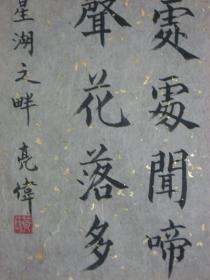 處處聞啼
聲花落多
星湖之畔 亮偉